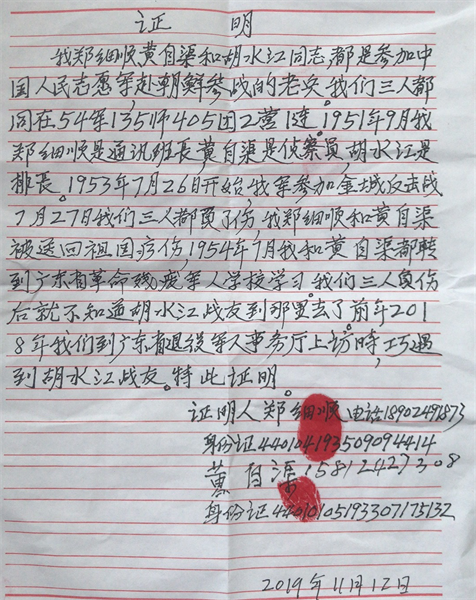 证 明
我郑细顺黄自渠和胡水江同志,都是参加中
国人民志愿军赴朝鲜参战的老兵.我们三人都
同在54军135师405团2营1连.1951年9月我
郑细顺是通讯班长,黄自渠是侦察员,胡水江是
排长。1953年7月26日开始,我军参加金城反击战
7月27日我们三人都负了伤,我郑细顺和黄自渠
被送回祖国疗伤,1954年1月我和黄自渠都转
到广东省革命残废军人学校学习.我们三人负伤
后就不知道胡水江战友到那里去了.前年201
8年我们到广东省退役军人事务厅上访時,巧遇
到胡水江战友。特此证明。
证明人郑细顺电话18902491873
身份证440104193509094414
黄自渠15812427308
身份证440105193307175132
2019年11月12日